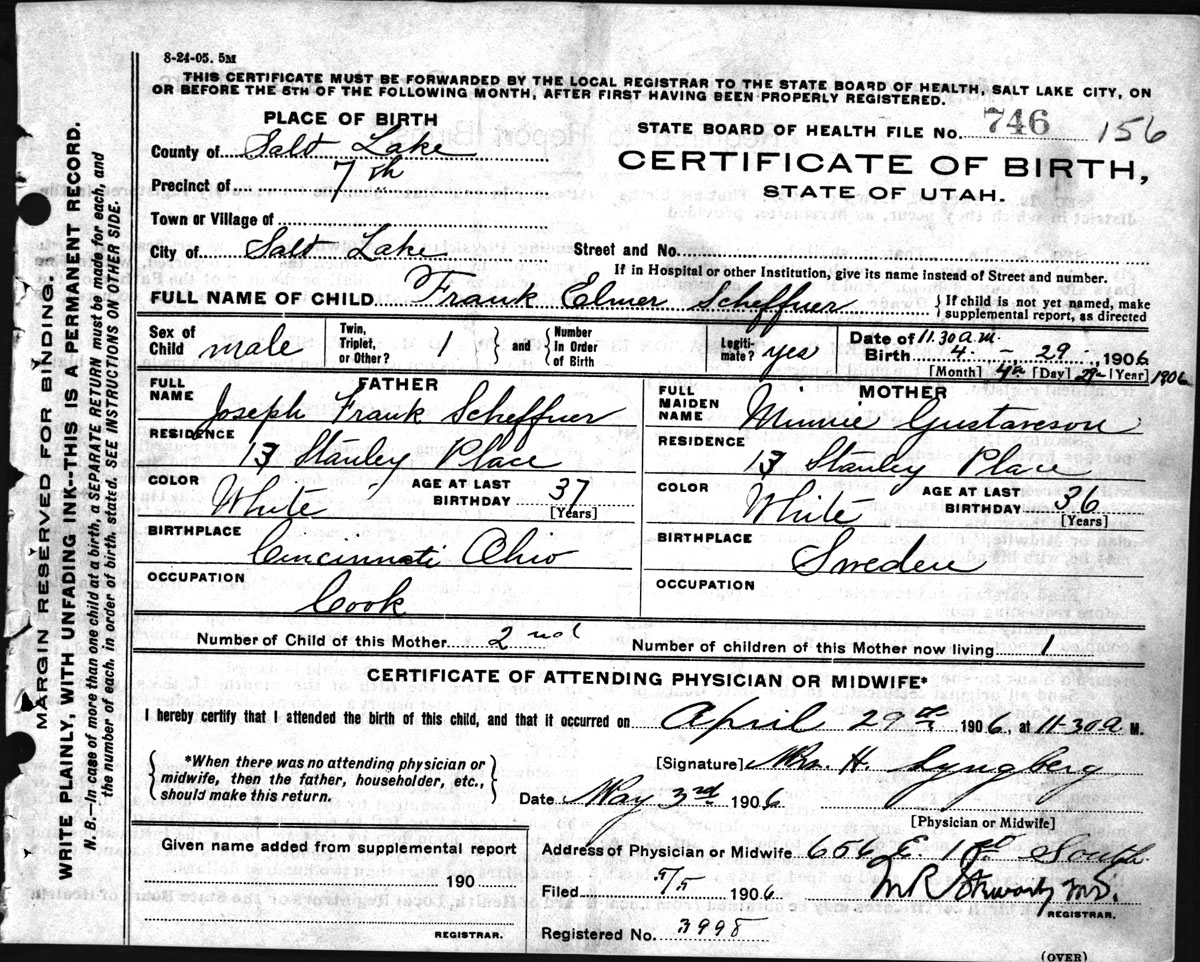 8-24-05. 5M
THIS CERTIFICATE MUST BE FORWARDED BY THE LOCAL REGISTRAR TO THE STATE BOARD OF HEALTH, SALT LAKE CITY, ON
OR BEFORE THE 5TH OF THE FOLLOWING MONTH, AFTER FIRST HAVING BEEN PROPERLY REGISTERED.
PLACE OF BIRTH
STATE BOARD OF HEALTH FILE No. 746 156
County of Salt Lake
CERTIFICATE OF BIRTH,
STATE OF UTAH.
Precinct of 7th
Town or Village of
City of Salt Lake Street and No.
If in Hospital or other Institution, give its name instead of Street and number.
FULL NAME OF CHILD Frank Elmer Scheffner { If child is not yet named, make
supplemental report, as directed
Sex of Child male
Twin, Triplet, or Other? 1 } and { Number In Order of Birth
Legiti-mate? yes
Date of Birth 11.30 a.m. 4 - 29 - 1906
[Month] 4th [Day] 29 [Year] 1906
FATHER
FULL NAME Joseph Frank Scheffner
RESIDENCE 13 Stanley Place
COLOR White AGE AT LAST BIRTHDAY 37 [Years]
BIRTHPLACE Cincinnati Ohio
OCCUPATION Cook
MOTHER
FULL MAIDEN NAME Minnie Gustaveson
RESIDENCE 13 Stanley Place
COLOR White AGE AT LAST BIRTHDAY 36 [Years]
BIRTHPLACE Sweden
OCCUPATION
Number of Child of this Mother 2nd Number of children of this Mother now living 1
CERTIFICATE OF ATTENDING PHYSICIAN OR MIDWIFE*
I hereby certify that I attended the birth of this child, and that it occurred on April 29th 1906, at 11-30 a M.
{ *When there was no attending physician or
midwife, then the father, householder, etc.,
should make this return. }
[Signature] Mrs. H. Lyngberg
Date May 3rd 1906
[Physician or Midwife]
Given name added from supplemental report
190
REGISTRAR.
Address of Physician or Midwife 606 E. 1st South
Filed 5/5 1906 M R Stewart M.D.
REGISTRAR.
Registered No. 3998
(OVER)
MARGIN RESERVED FOR BINDING.
WRITE PLAINLY, WITH UNFADING INK--THIS IS A PERMANENT RECORD.
N. B.—In case of more than one child at a birth, a SEPARATE RETURN must be made for each, and
the number of each, in order of birth, stated. SEE INSTRUCTIONS ON OTHER SIDE.